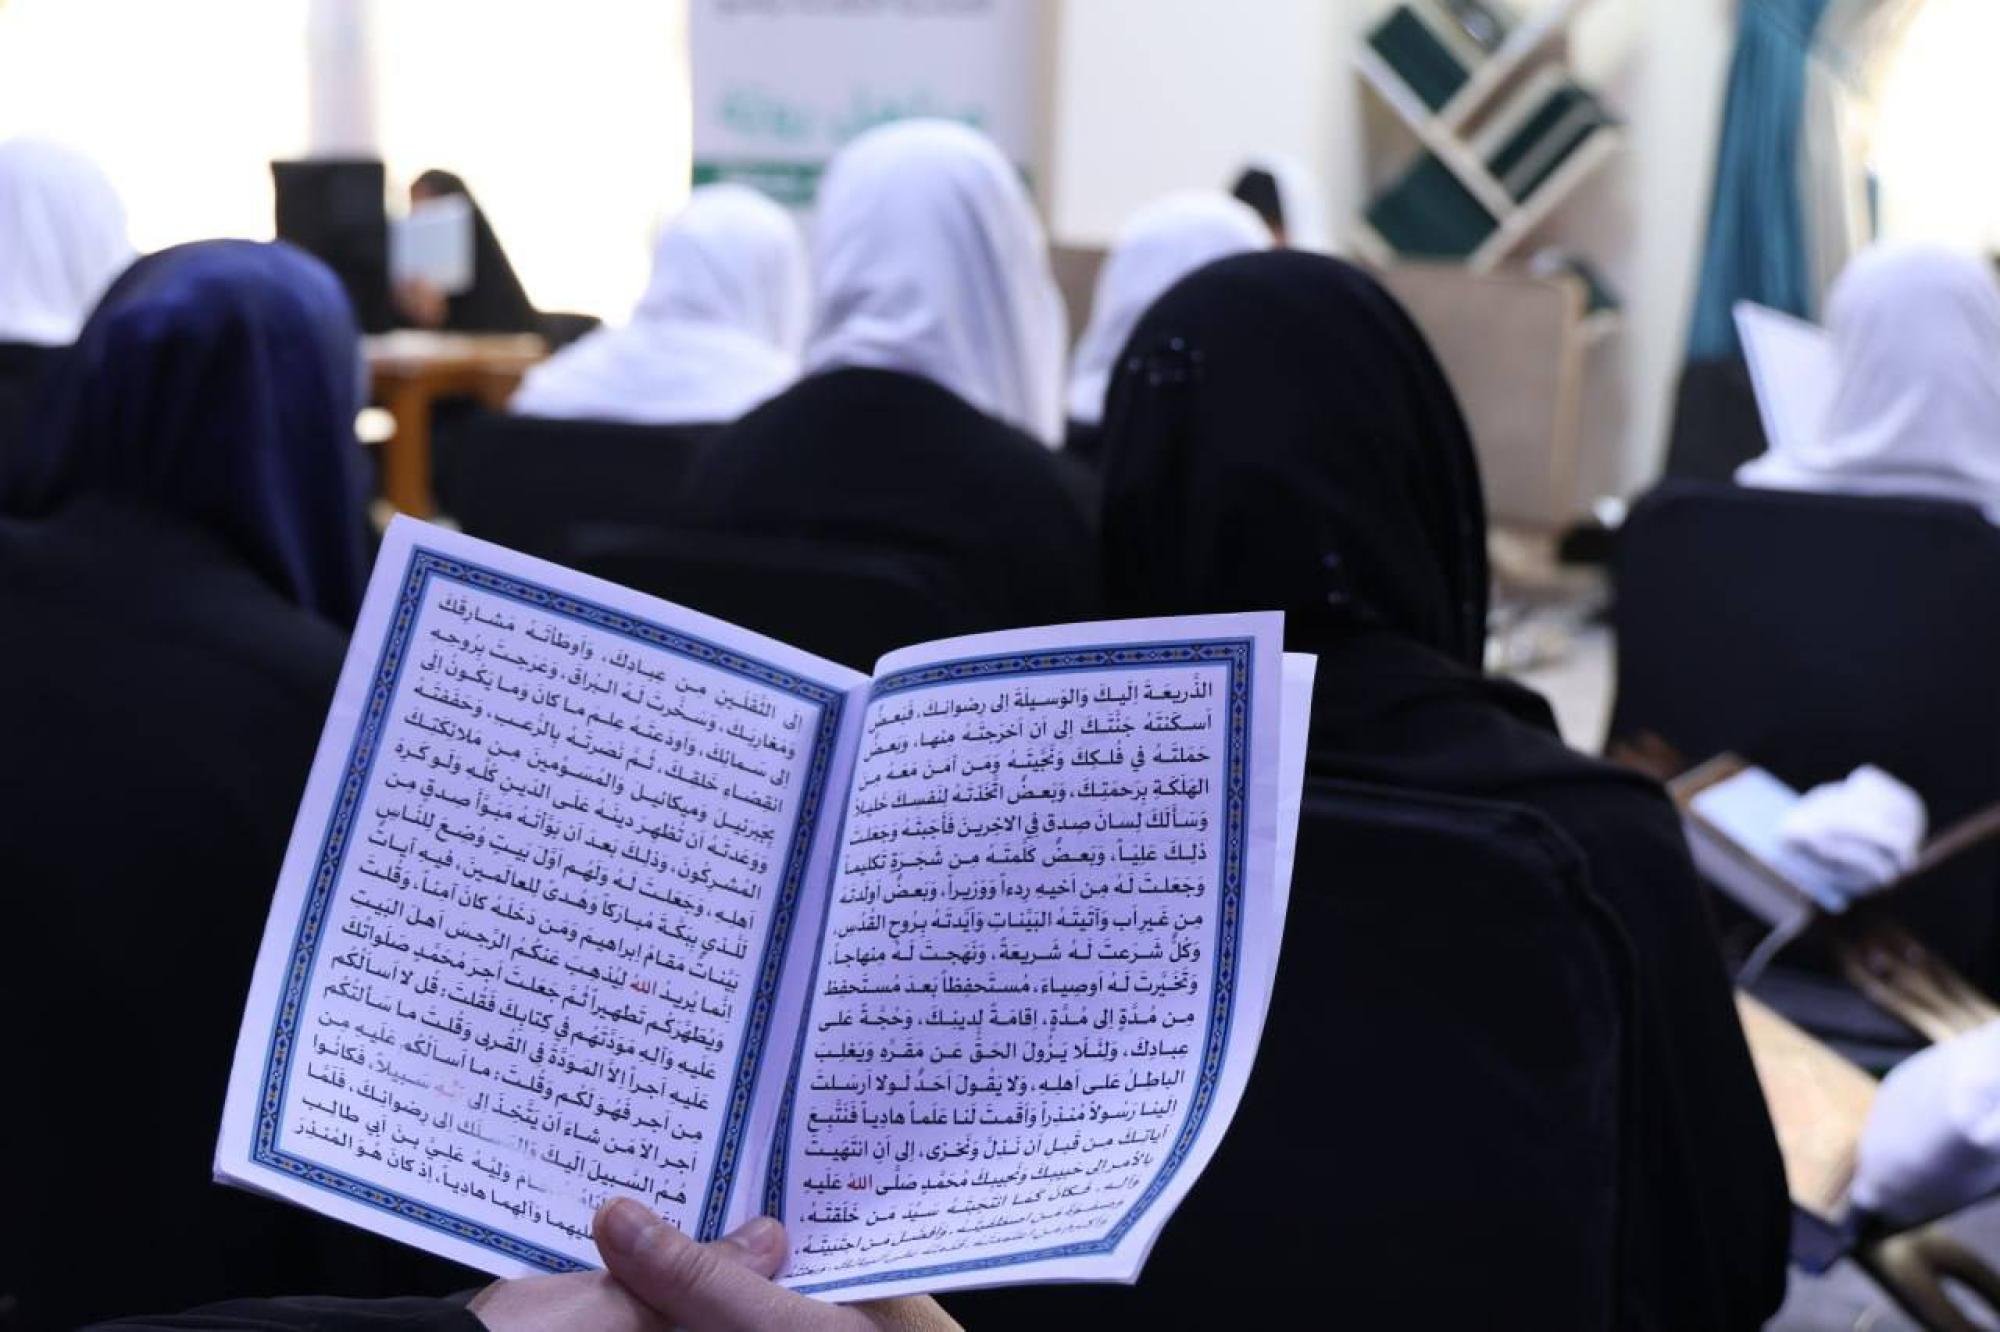 الذَّريعَةَ اِلَيكَ وَالوَسيلَةَ اِلى رِضوانِكَ، فَبَعضٌ
اَسكَنتَهُ جَنَّتَكَ اِلى اَن اَخرَجتَهُ مِنها، وَبَعضٌ
حَمَلتَهُ في فُلكِكَ وَنَجَّيتَهُ وَمَن آمَنَ مَعَهُ مِنَ
الهَلَكَةِ بِرَحمَتِكَ، وَبَعضٌ اتَّخَذتَهُ لِنَفسِكَ خَليلاً
وَسَأَلَكَ لِسانَ صِدقٍ فِي الاخِرينَ فَأَجَبتَهُ وَجَعَلتَ
ذلِكَ عَلِيّاً، وَبَعضٌ كَلَّمتَهُ مِن شَجَرَةٍ تَكليماً
وَجَعَلتَ لَهُ مِن اَخيهِ رِدءاً وَوَزيراً، وَبَعضٌ اَولَدتَهُ
مِن غَيرِ اَب وَآتَيتَهُ البَيِّناتِ وَاَيَّدتَهُ بِروحِ القُدُسِ،
وَكُلٌّ شَرَعتَ لَهُ شَريعَةً، وَنَهَجتَ لَهُ مِنهاجاً،
وَتَخَيَّرتَ لَهُ اَوصِياءَ، مُستَحفِظاً بَعدَ مُستَحفِظ
مِن مُدَّةٍ اِلى مُدَّةٍ، اِقامَةً لِدينِكَ، وَحُجَّةً عَلى
عِبادِكَ، وَلِئَلّا يَزُولَ الحَقُّ عَن مَقَرِّهِ وَيَغلِبَ
الباطِلُ عَلى اَهلِهِ، وَلا يَقُولَ اَحَدٌ لَولا اَرسَلتَ
اِلَينا رَسُولاً مُنذِراً وَاَقَمتَ لَنا عَلَماً هادِياً فَنَتَّبِعَ
آياتِكَ مِن قَبلِ اَن نَذِلَّ وَنَخزى، اِلى اَنِ انتَهَيتَ
بِالاَمرِ اِلى حَبيبِكَ وَنَجيبِكَ مُحَمَّدٍ صَلَّى اللهُ عَلَيهِ
وَآلِهِ، فَكانَ كَمَا انتَجَبتَهُ سَيِّدَ مَن خَلَقتَهُ،
وَصَفوَةَ مَنِ اصطَفَيتَهُ، وَاَفضَلَ مَنِ اجتَبَيتَهُ،
وَاَكرَمَ مَنِ اعتَمَدتَهُ، قَدَّمتَهُ عَلى اَنبِيائِكَ، وَبَعَثتَهُ
اِلَى الثَّقَلَينِ مِن عِبادِكَ، وَاَوطَأتَهُ مَشارِقَكَ
وَمَغارِبَكَ، وَسَخَّرتَ لَهُ البُراقَ، وَعَرَجتَ بِرُوحِهِ
اِلى سَمائِكَ، وَاَودَعتَهُ عِلمَ ما كانَ وَما يَكُونُ اِلَى
انقِضاءِ خَلقِكَ، ثُمَّ نَصَرتَهُ بِالرُّعبِ، وَحَفَفتَهُ
بِجَبرَئيلَ وَميكائيلَ وَالمُسَوِّمينَ مِن مَلائِكَتِكَ
وَوَعَدتَهُ اَن تُظهِرَ دينَهُ عَلَى الدّينِ كُلِّهِ وَلَو كَرِهَ
المُشرِكُونَ، وَذلِكَ بَعدَ اَن بَوَّأتَهُ مُبَوَّأَ صِدقٍ مِن
اَهلِهِ، وَجَعَلتَ لَهُ وَلَهُم اَوَّلَ بَيتٍ وُضِعَ لِلنّاسِ
لَلَّذي بِبَكَّةَ مُبارَكاً وَهُدىً لِلعالَمينَ، فيهِ آياتٌ
بَيِّناتٌ مَقامُ اِبراهيمَ وَمَن دَخَلَهُ كانَ آمِناً، وَقُلتَ
اِنَّما يُريدُ اللهُ لِيُذهِبَ عَنكُمُ الرِّجسَ اَهلَ البَيتِ
وَيُطَهِّرَكُم تَطهيراً ثُمَّ جَعَلتَ اَجرَ مُحَمَّدٍ صَلَواتُكَ
عَلَيهِ وَآلِهِ مَوَدَّتَهُم في كِتابِكَ فَقُلتَ: قُل لا اَسأَلُكُم
عَلَيهِ اَجراً اِلاَّ المَوَدَّةَ فِي القُربى وَقُلتَ ما سَأَلتُكُم
مِن اَجرٍ فَهُوَ لَكُم وَقُلتَ: ما اَسأَلُكُم عَلَيهِ مِن
اَجرٍ اِلاّ مَن شاءَ اَن يَتَّخِذَ اِلى رَبِّهِ سَبيلاً، فَكانُوا
هُمُ السَّبيلَ اِلَيكَ وَالمَسلَكَ اِلى رِضوانِكَ، فَلَمَّا
اَيّامُهُ اَقامَ وَلِيَّهُ عَلِيَّ بنَ اَبي طالِب
عَلَيهِما وَآلِهِما هادِياً، اِذ كانَ هُوَ المُنذِرَ